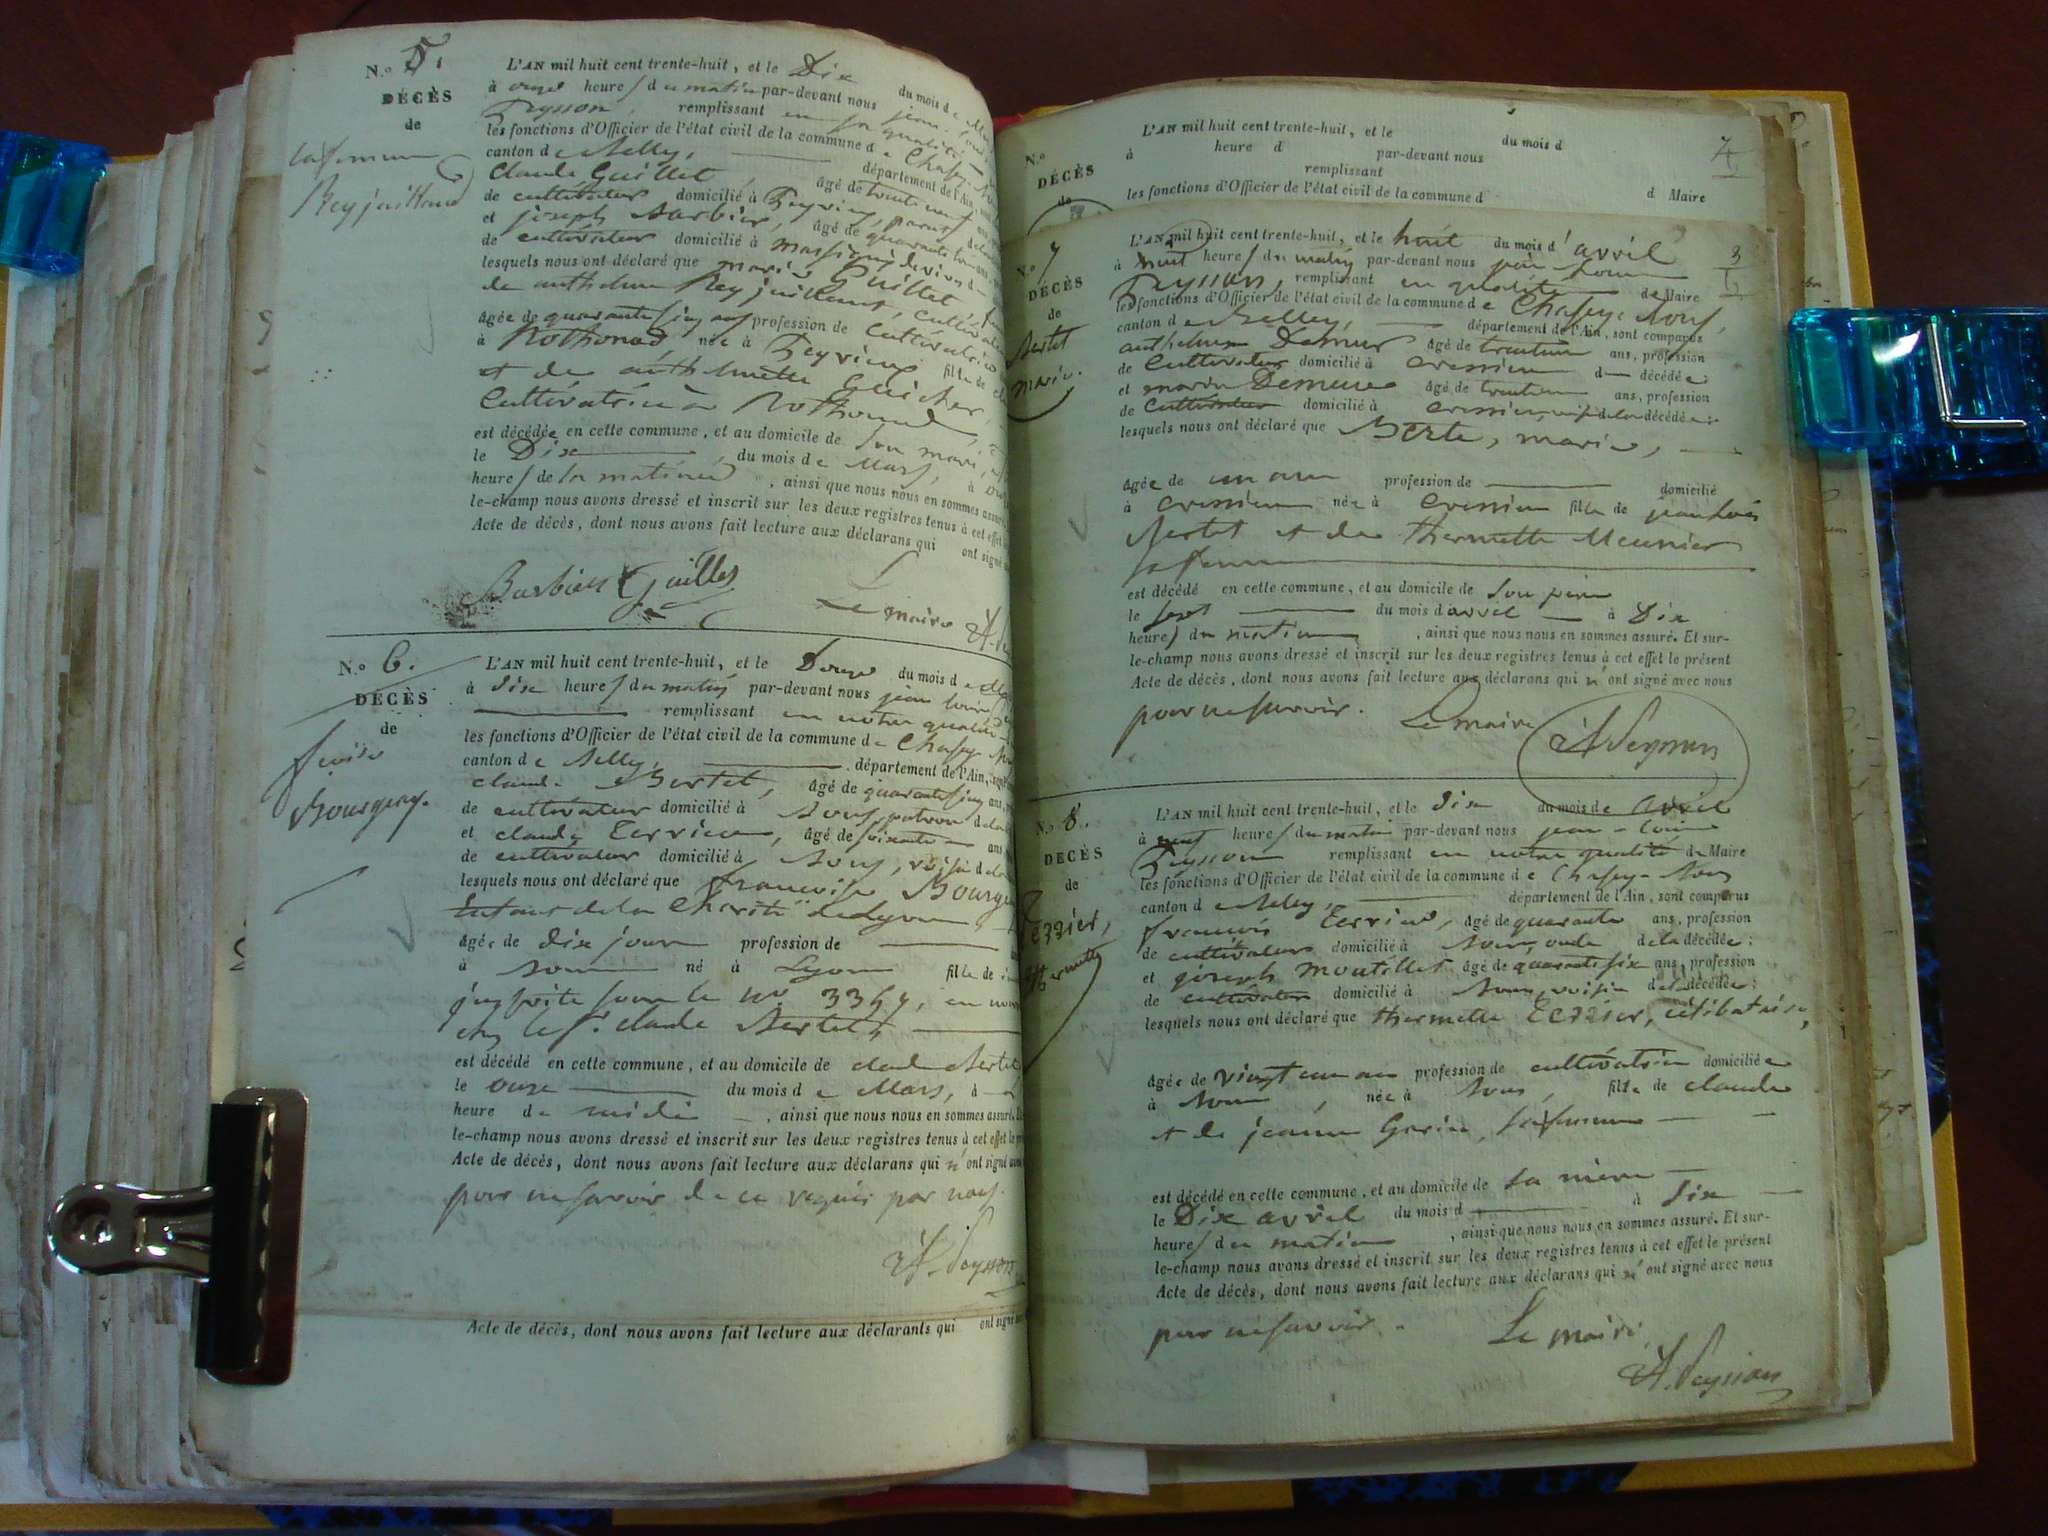 N.º 5.
DÉCÈS
de
la femme
Reyjuillaud
L'AN mil huit cent trente-huit, et le Dix du mois d
à onze heures du matin par-devant nous jean
Peysson, remplissant en sa qualité
les fonctions d'Officier de l'état civil de la commune de Chasey
canton de Belley, département de l'Ain,
claude Guillet, âgé de
de cultivateur domicilié à Peyrieu,
et joseph Barbier, âgé de quarante
de cultivateur domicilié à Massignieu de rives
lesquels nous ont déclaré que marie Guillet
de anthelme Reyjuillaud,
âgée de quarante cinq ans profession de cultivatrice
à Rothonod née à Peyrieux fille de
et de anthelmette
cultivatrice à Rothonod
est décédée en cette commune, et au domicile de son mari,
le Dix du mois de Mars, à
heures de la matinée, ainsi que nous nous en sommes assuré.
le-champ nous avons dressé et inscrit sur les deux registres tenus à cet effet
Acte de décès, dont nous avons fait lecture aux déclarans qui ont signé
Barbier Guillet
Le maire
N.º 6.
DÉCÈS
de
Bourgeng.
L'AN mil huit cent trente-huit, et le Douze du mois de
à Dix heures du matin par-devant nous jean louis
remplissant en notre qualité
les fonctions d'Officier de l'état civil de la commune de Chasey
canton de Belley, département de l'Ain,
claude Bertet, âgé de quarante cinq ans,
de cultivateur domicilié à Nous, patron de la
et claude Terrier, âgé de soixante ans
de cultivateur domicilié à Nous, voisin de la
lesquels nous ont déclaré que francoise
Enfant de la Charité de Lyon
âgée de dix jours profession de
à Nous né à Lyon fille de
inscrite sous le no
chez le sr claude Bertet,
est décédé en cette commune, et au domicile de claude Bertet
le onze du mois de Mars, à
heure de midi, ainsi que nous nous en sommes assuré.
le-champ nous avons dressé et inscrit sur les deux registres tenus à cet effet le
Acte de décès, dont nous avons fait lecture aux déclarans qui n'ont signé
pour ne savoir de ce requis par nous.
Peysson
Acte de décès, dont nous avons fait lecture aux déclarants qui ont signé
N.º
DÉCÈS
de
L'AN mil huit cent trente-huit, et le du mois d
à heure d par-devant nous
remplissant
les fonctions d'Officier de l'état civil de la commune d d Maire
N.º 7
DÉCÈS
de
Bertet
marie.
L'AN mil huit cent trente-huit, et le huit du mois d'avril
à heures du matin par-devant nous
Peysson, remplissant en qualité de Maire
les fonctions d'Officier de l'état civil de la commune de Chasey Nous,
canton de Belley, département de l'Ain, sont comparus
anthelme Demeur âgé de ans, profession
de cultivateur domicilié à cressieu d décédée
et marin Demeure âgé de ans, profession
de cultivateur domicilié à cressieu, voisin de la décédée:
lesquels nous ont déclaré que Berte, marie,
âgée de un an profession de domicilié
à cressieu née à cressieu fille de jean louis
Bertet et de thermette Meunier
sa femme
est décédé en cette commune, et au domicile de son père
le sept du mois d avril à Dix
heures du matin, ainsi que nous nous en sommes assuré. Et sur-
le-champ nous avons dressé et inscrit sur les deux registres tenus à cet effet le présent
Acte de décès, dont nous avons fait lecture aux déclarans qui n'ont signé avec nous
pour ne savoir. Le maire
Peysson
N.º 8.
DÉCÈS
de
Terrier,
thermette
L'AN mil huit cent trente-huit, et le dix du mois de avril
à neuf heures du matin par-devant nous jean-louis
Peysson remplissant en notre qualité de Maire
les fonctions d'Officier de l'état civil de la commune de Chasey-Nous
canton de Belley, département de l'Ain, sont comparus
francois Terrier, âgé de quarante ans, profession
de cultivateur domicilié à Nous, oncle de la décédée:
et joseph moutillet âgé de quarante six ans, profession
de cultivateur domicilié à Nous, voisin de la décédée:
lesquels nous ont déclaré que thermette Terrier, célibataire,
âgée de vingt un ans profession de cultivatrice domiciliée
à Nous, née à Nous, fille de claude
et de jeanne Gorin, sa femme
est décédé en cette commune, et au domicile de sa mère
le Dix avril du mois d à six
heures du matin, ainsi que nous nous en sommes assuré. Et sur-
le-champ nous avons dressé et inscrit sur les deux registres tenus à cet effet le présent
Acte de décès, dont nous avons fait lecture aux déclarans qui n'ont signé avec nous
pour ne savoir. Le maire
Peysson